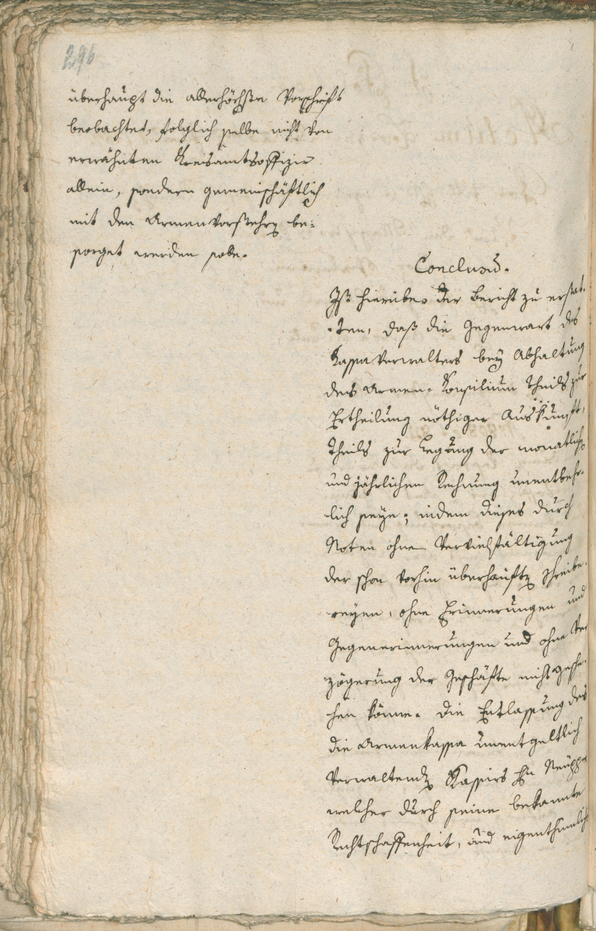 296
überhaupt die allerhöchste Vorschrift
beobachtet, folglich selbe nicht von
erwähnten Kreisamtsoffizier
allein, sondern gemeinschäftlich
mit den Armenvorstehern be:
sorget werden solle.
Conclusum.
Ist hierüber der Bericht zu erstat-
-ten, daß die Gegenwart des
Kassa Verwalters bey Abhaltung
des Armen-Konsilium theils zur
Ertheilung nöthiger Auskünfte,
theils zur Legung der monatlich
und jährlichen Rechnung unentbehr-
lich seye; indem dieses durch
Noten ohne Vervielfältigung
der schon vorhin überhäuften Schreibe-
reyen, ohne Erinnerungen und
Gegenerinnerungen und ohne Ver
zögerung der Geschäfte nicht gesche-
hen könne. Die Entlassung des
die Armenkassa unentgeltlich
Verwaltenden Kassiers
welcher durch seine bekannte
Rechtschaffenheit, und eigenthümlich